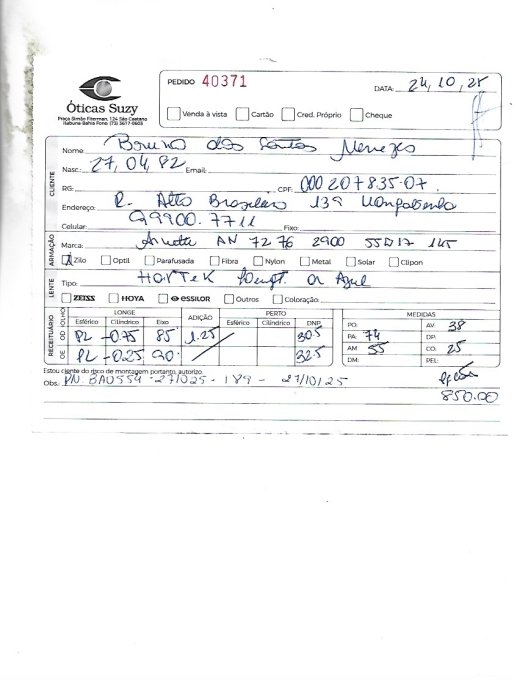 Óticas Suzy
Praça Simão Fiterman, 124 São Caetano
Itabuna-Bahia Fone: (73) 3617-0603
PEDIDO 40371 DATA: 24, 10, 25
Venda à vista Cartão Cred. Próprio Cheque
CLIENTE
Nome: Bruno dos Santos Menezes
Nasc.: 27, 04, 82 Email:
RG: CPF: 000 207 835-07.
Endereço: R. Alto Brasileiro 139
Celular: 99900.7711 Fixo:
ARMAÇÃO
Marca: Arnette AN 7276 2900 55□17 145
Zilo Optil Parafusada Fibra Nylon Metal Solar Clipon
LENTE
Tipo: Hortek Azul
ZEISS HOYA ESSILOR Outros Coloração:
RECEITUÁRIO
OLHO LONGE ADIÇÃO PERTO DNP MEDIDAS
Esférico Cilíndrico Eixo Esférico Cilíndrico
OD PL -0.75 85 1.25 30.5
OE PL -0.25 90 32.5
PO: AV: 38
PA: 74 DP:
AM: 55 CO: 25
DM: PEL:
Estou ciente do risco de montagem portanto, autorizo.
Obs.: BA0554-271025-189- 27/10/25
850.00